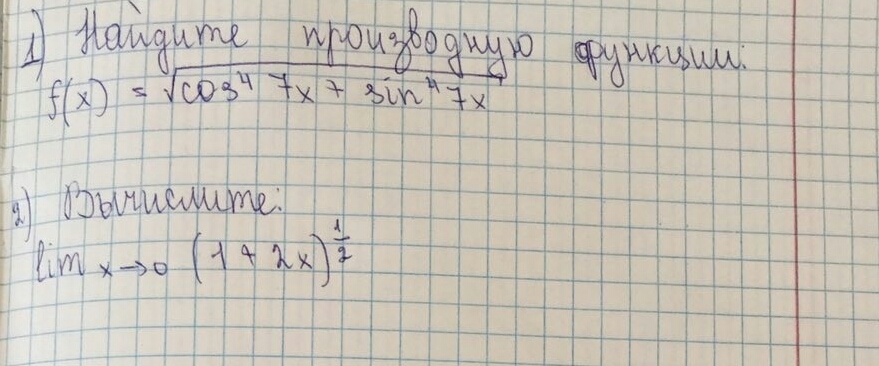 1) Найдите производную функции:
f(x) = √cos⁴ 7x + sin⁴ 7x
2) Вычислите:
lim x→0 (1 + 2x)^1/2